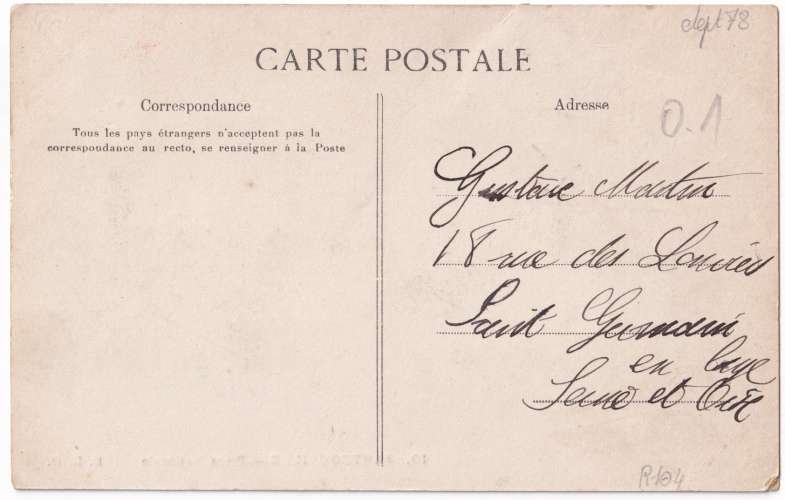 dept 78
CARTE POSTALE
Correspondance
Tous les pays étrangers n'acceptent pas la
correspondance au recto, se renseigner à la Poste
Adresse
0.1
Gustave Martin
18 rue des
Saint Germain
en Laye
Seine et Oise